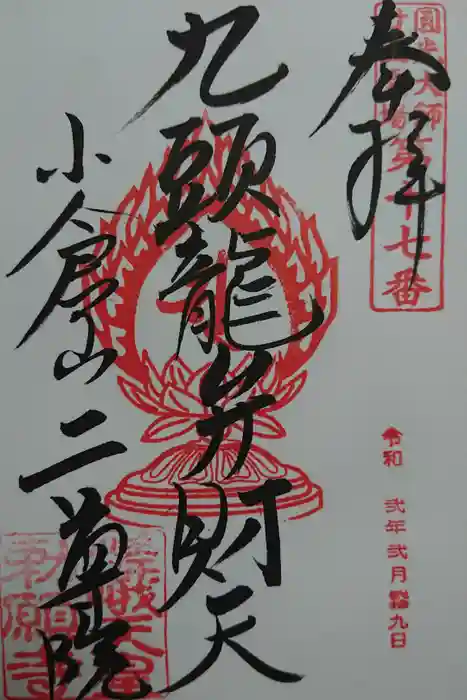 奉拝
圓光大師
廿五霊場第十七番
九頭龍弁財天
小倉山 二尊院
令和 弐年弐月 九日